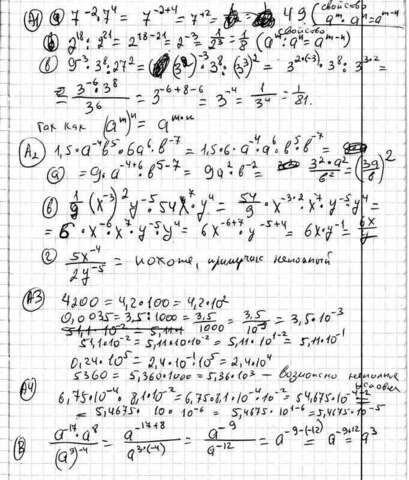 А1 а 7^-2 · 7^4 = 7^-2+4 = 7^+2 = 49. (свойство a^m · a^n = a^m-n)
б 2^18 : 2^21 = 2^18-21 = 2^-3 = 1/2^3 = 1/8 (свойство a^m : a^n = a^m-n)
в 9^-3 · 3^8 : 27^2 = (3^2)^-3 · 3^8 : (3^3)^2 = 3^2·3 · 3^8 : 3^3·2 =
= 3^-6 · 3^8 / 3^6 = 3^-6+8-6 = 3^-4 = 1/3^4 = 1/81.
так как (a^m)^n = a^m×n
А2 1,5 · a^-4 b^5 · 6a^6 · b^-7 = 1,5 · 6 · a^-4 · a^6 · b^5 · b^-7 =
а = 9 · a^-4+6 · b^5-7 = 9a^2 · b^-2 = 3^2 · a^2 / b^2 = (3a/b)^2
в 1/9 (x^-3)^2 y^-5 · 54x^7 · y^4 = 54/9 · x^-3·2 · x^7 · y^-5 · y^4 =
= 6 · x^-6 · x^7 · y^-5 · y^4 = 6x^-6+7 · y^-5+4 = 6x · y^-1 = 6x/y
г 5x^-4 / 2y^-5 = похоже, примерчик неполный
А3 4200 = 4,2 · 100 = 4,2 · 10^2
0,0035 = 3,5 : 1000 = 3,5/1000 = 3,5/10^3 = 3,5 · 10^-3
51,1 · 10^-2 = 5,11
51,1 · 10^-2 = 5,11 · 10 · 10^-2 = 5,11 · 10^1-2 = 5,11 · 10^-1
0,24 · 10^5 = 2,4 · 10^-1 · 10^5 = 2,4 · 10^4
5360 = 5,360 · 1000 = 5,36 · 10^3 – возможно неполное условие
А4 6,75 · 10^-4 · 8,1 · 10^-2 = 6,75 · 8,1 · 10^-4 · 10^-2 = 54,675 · 10^-4-2 =
= 5,4675 · 10 · 10^-6 = 5,4675 · 10^1-6 = 5,4675 · 10^-5
В a^-17 · a^8 / (a^3)^-4 = a^-17+8 / a^3·(-4) = a^-9 / a^-12 = a^-9-(-12) = a^-9+12 = a^3